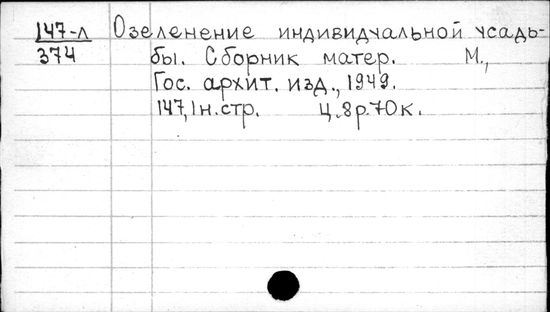 147-л Озеленение индивидуальной усадь-
374 бы. Сборник матер. М.,
Гос. архит. изд., 1949.
147,1н.стр. ц.8р.70к.